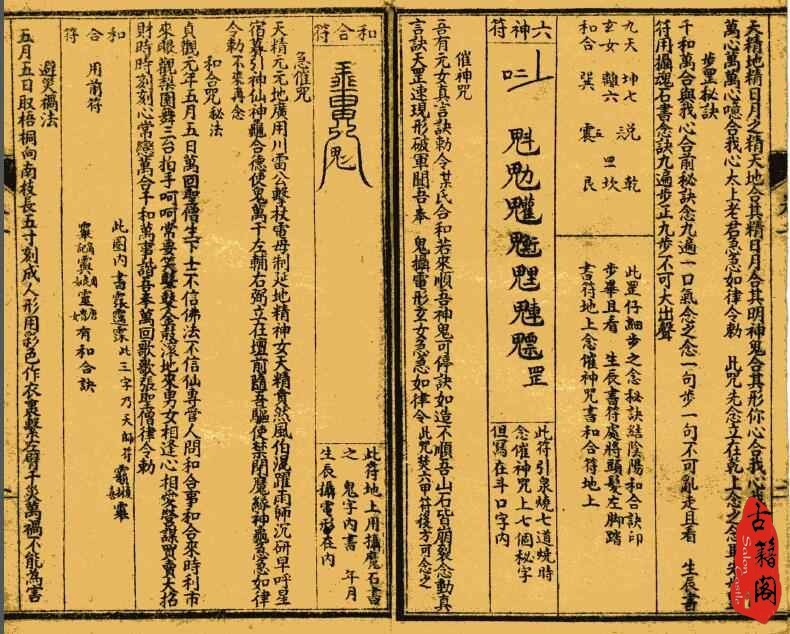 天精地精日月之精天地合其精日月合其明神鬼合其形你心合我心我
萬心萬萬心噫合我心太上老君急急如律令勅 此咒先念立在乾上念之念
步罡秘訣
千和萬合與我心合前秘訣念九遍一口氣念之念一句步一句不可亂走且看 生辰書
符用攝魂石書念訣九遍步正九步不可大出聲
九天 坤七 兌 乾
玄女 離六 坎
和合 巽 震 艮
此罡仔細步之念秘訣結陰陽和合訣印
步畢且看 生辰書符處將頭髮左脚踏
書符地上念催神咒書和合符地上
六神符
罡
此符引泉繞七道燒時
念催神咒上七個秘字
但寫在斗口字內
催神咒
吾有元女真言訣勅令某氏合和若來順吾神鬼可停訣如造不順吾山石皆崩裂念動真
言訣天罡速現形破軍聞吾奉 鬼攝電形玄女急急如律令此咒焚六甲符後方可念之
和合符
此符地上用攝魔石書
之 鬼字內書 年月
生辰攝電形在內
急催咒
天精元元地廣用川雷公擊杖電母制延地精神女天精賁然風伯混躍雨師沉研早呼星
宿募引神仙神龜合德使鬼萬千左輔右弼立在壇前隨吾驅使禁閉魔緣神龜急急如律
令勅不來再念
和合咒秘法
貞觀元年五月五日萬回聖僧生下土不信佛法不信仙專管人間和合事和合來時利市
來眼觀梨園舞三台拍手呵呵常要笑鼕鼕金鼓滾地來男女相逢心相愛營謀買賣大招
財時時刻刻心常戀萬合千和萬事諧吾奉萬回歌歌張聖僧律令勅
和合符
用前符
此圈內書 此三字乃天師符
有和合訣
避災禍法
五月五日取梧桐向南枝長五寸刻成人形用彩色作衣裹繫左臂千災萬禍不能為害
古籍閣
Salon Castle